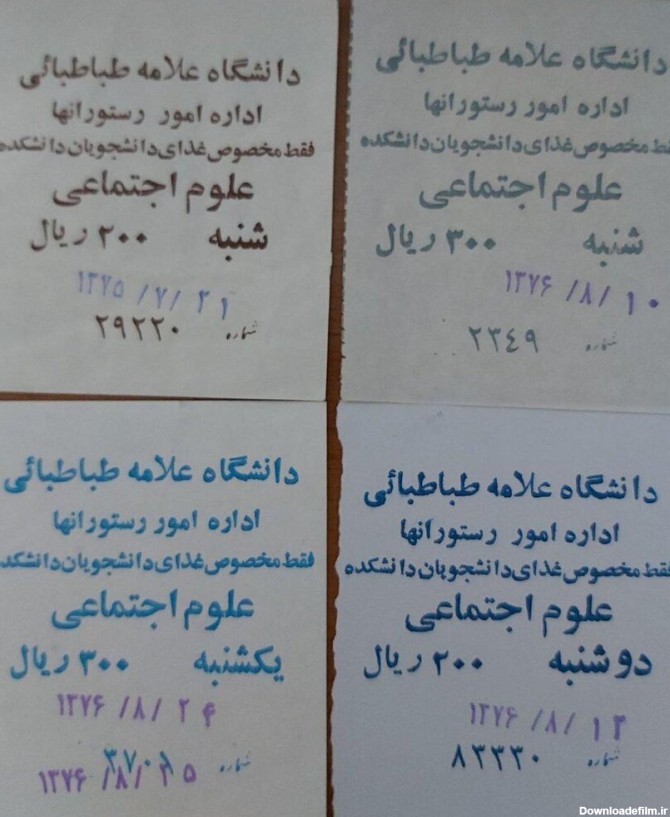 دانشگاه علامه طباطبائی
اداره امور رستورانها
فقط مخصوص غذای دانشجویان دانشکده
علوم اجتماعی
شنبه ۳۰۰ ریال
۱۳۷۶/۸/۱۰
شماره ۲۳٤۹
دانشگاه علامه طباطبائی
اداره امور رستورانها
فقط مخصوص غذای دانشجویان دانشکده
علوم اجتماعی
شنبه ۲۰۰ ریال
۱۳۷۵/۷/۲۱
شماره ۲۹۲۲۰
دانشگاه علامه طباطبائی
اداره امور رستورانها
فقط مخصوص غذای دانشجویان دانشکده
علوم اجتماعی
دوشنبه ۲۰۰ ریال
۱۳۷۶/۸/۱۲
شماره ۸۳۳۳۰
دانشگاه علامه طباطبائی
اداره امور رستورانها
فقط مخصوص غذای دانشجویان دانشکد
علوم اجتماعی
یکشنبه ۳۰۰ ریال
۱۳۷۶/۸/۲۴
شماره
۱۳۷۶/۸/۲۵
Downloadefilm.ir